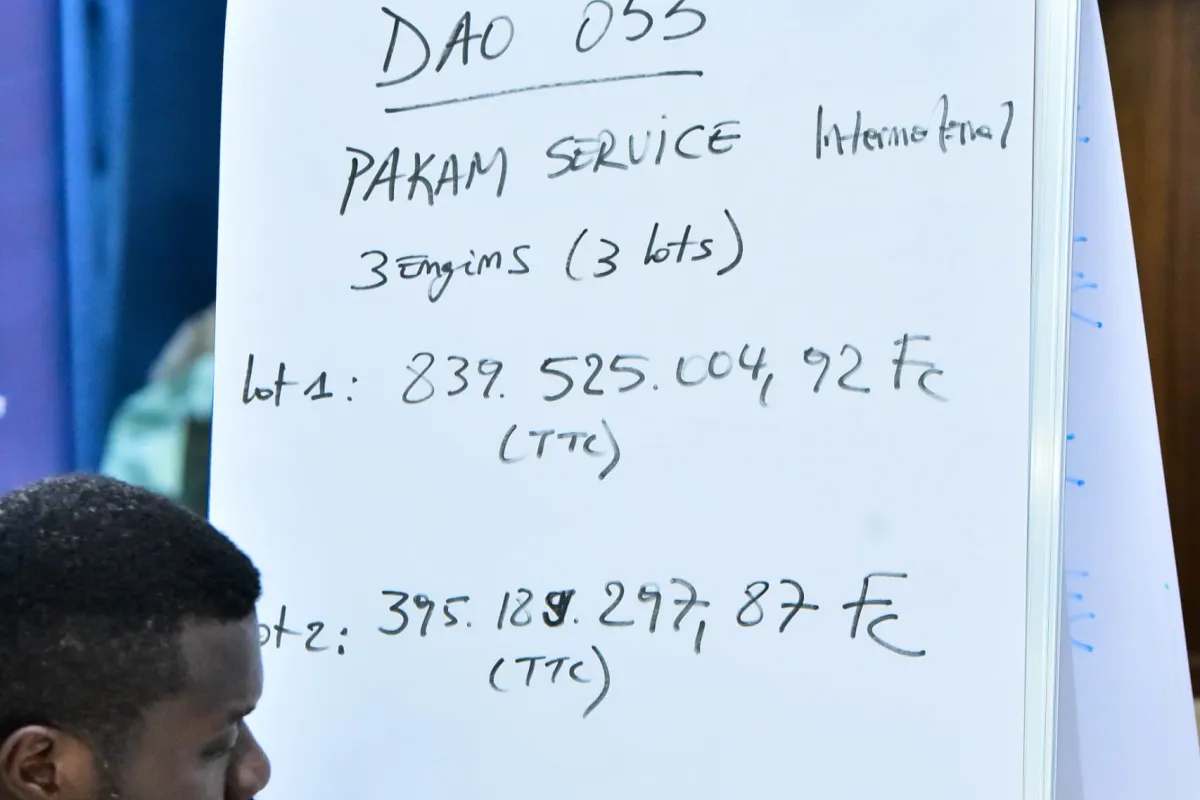 DAO 055
PAKAM SERVICE International
3 Engins (3 lots)
lot 1: 839.525.004,92 Fc
(TTC)
ot 2: 395.189.297,87 Fc
(TTC)